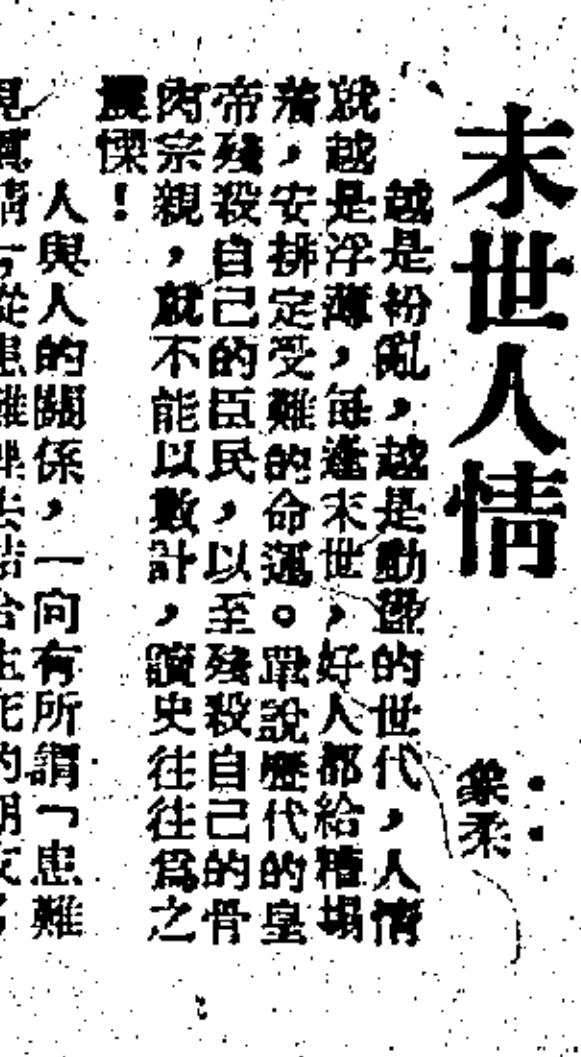 末世人情
柔
越是紛亂，越是動盪的世代，人情
就越是浮薄，每逢末世，好人都給糟塌
，安排定受難的命運。單說歷代的皇
帝殘殺自己的臣民，以至殘殺自己的骨
肉宗親，就不能以數計，讀史往往爲之
震慄！
人與人的關係，一向有所謂「患難
見真情」從患難去結合生死的朋友